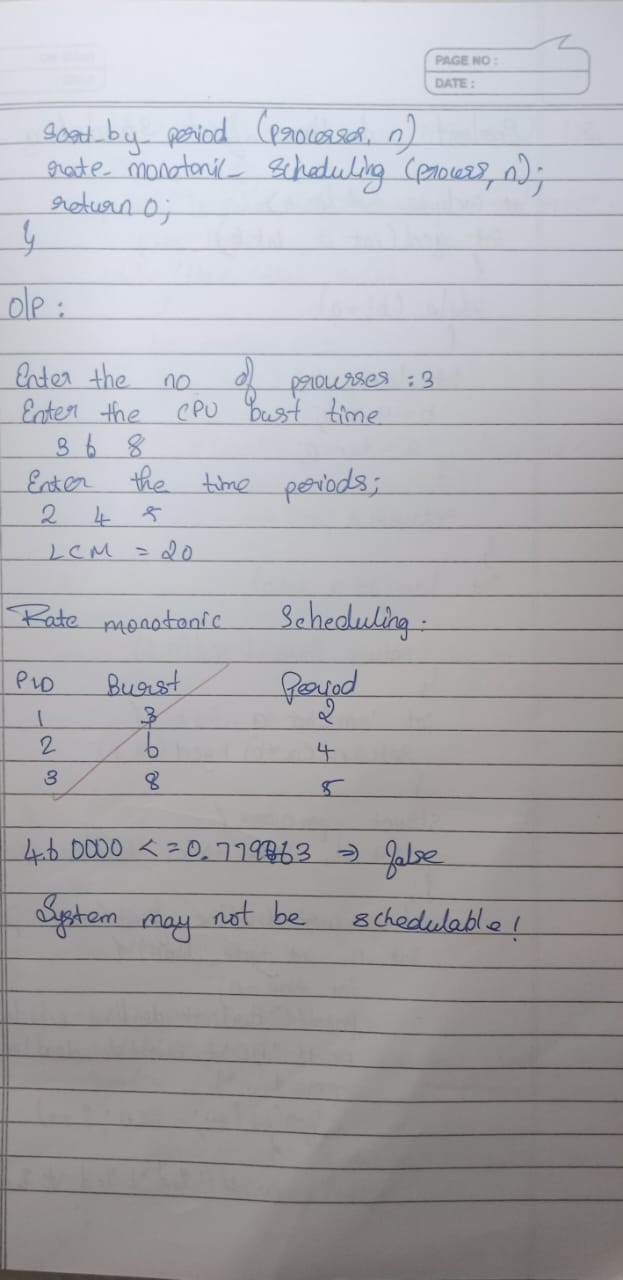 PAGE NO :
DATE :
sort_by_ period (processor, n)
rate_ monotonic_ scheduling (process, n);
return 0;
}
O/P :
Enter the no of prourses : 3
Enter the CPU bust time
3 6 8
Enter the time periods;
2 4 5
LCM = 20
Rate monotonic Scheduling.
PID Burst Period
1 3 2
2 6 4
3 8 5
4.60000 <= 0.779763 => false
System may not be schedulable!